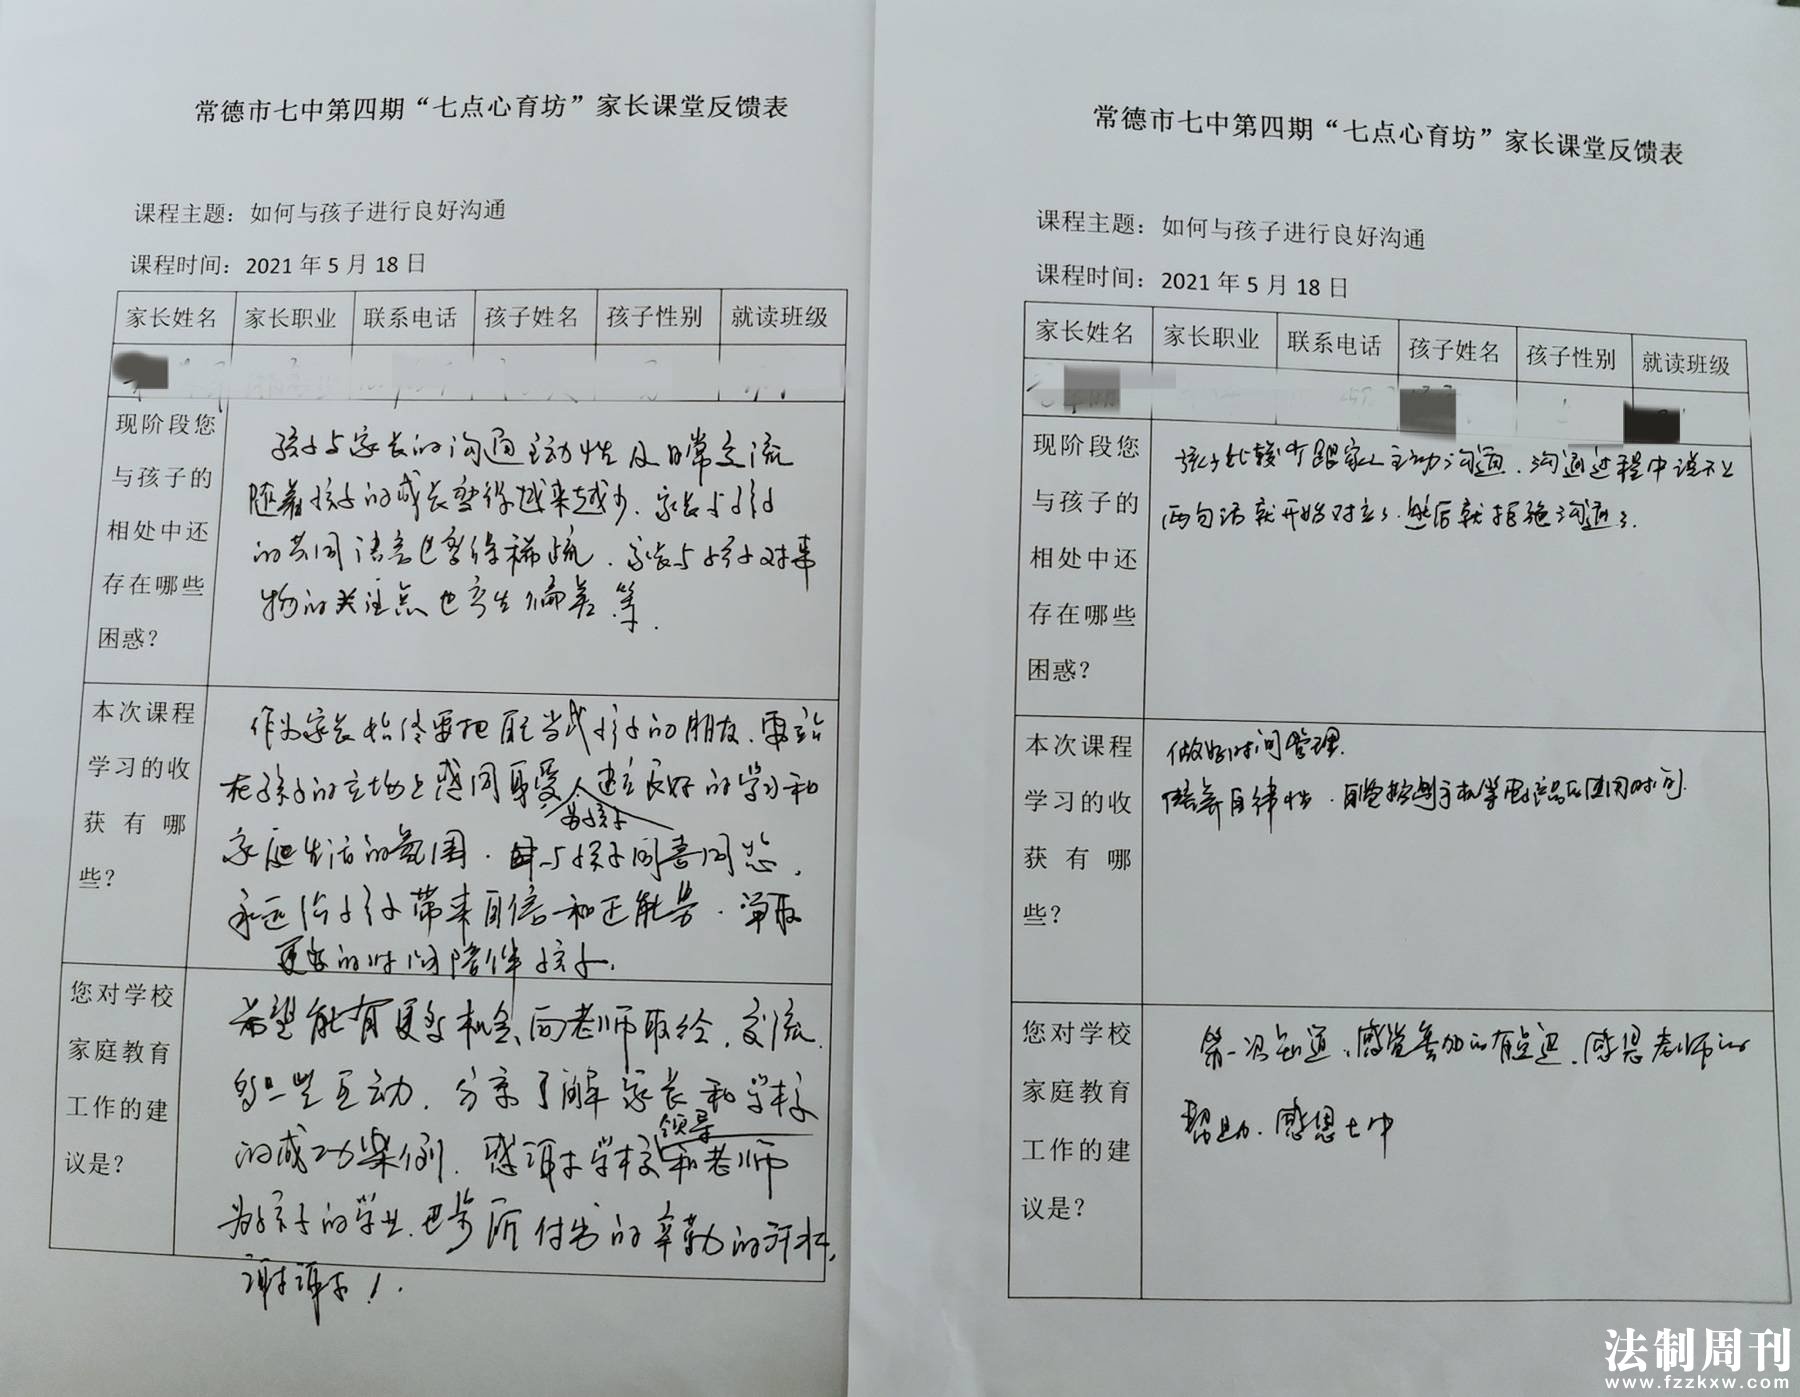 常德市七中第四期“七点心育坊”家长课堂反馈表
课程主题：如何与孩子进行良好沟通
课程时间：2021年5月18日
家长姓名 家长职业 联系电话 孩子姓名 孩子性别 就读班级
现阶段您
与孩子的
相处中还
存在哪些
困惑？
孩子与家长的沟通主动性及日常交流
随着孩子的成长变得越来越少．家长与孩子
的共同语言也变得稀疏．家长与孩子对事
物的关注点也产生偏差等．
本次课程
学习的收
获有哪
些？
作为家长始终要把自己当成孩子的朋友、要站
在孩子的立场上感同身受 建立良好的学习和
为孩子
家庭生活的氛围．与孩子同喜同悲，
永远给孩子带来自信和正能量．争取
更多的时间陪伴孩子．
您对学校
家庭教育
工作的建
议是？
希望能有更多机会向老师取经，交流．
多一些互动．分享了解家长和学校
领导
的成功案例．感谢学校和老师
为孩子的学业进步所付出的辛勤的汗水，
谢谢！．
常德市七中第四期“七点心育坊”家长课堂反馈表
课程主题：如何与孩子进行良好沟通
课程时间：2021年5月18日
家长姓名 家长职业 联系电话 孩子姓名 孩子性别 就读班级
现阶段您
与孩子的
相处中还
存在哪些
困惑？
孩子比较少跟家人主动沟通．沟通过程中说不上
两句话就开始对立了．然后就拒绝沟通了．
本次课程
学习的收
获有哪
些？
做好时间管理．
培养自律性．自觉控制手机等电子产品的使用时间．
您对学校
家庭教育
工作的建
议是？
第一次知道、感觉参加的有点迟．感恩老师的
帮助．感恩七中
法制周刊
www.fzzkxw.com